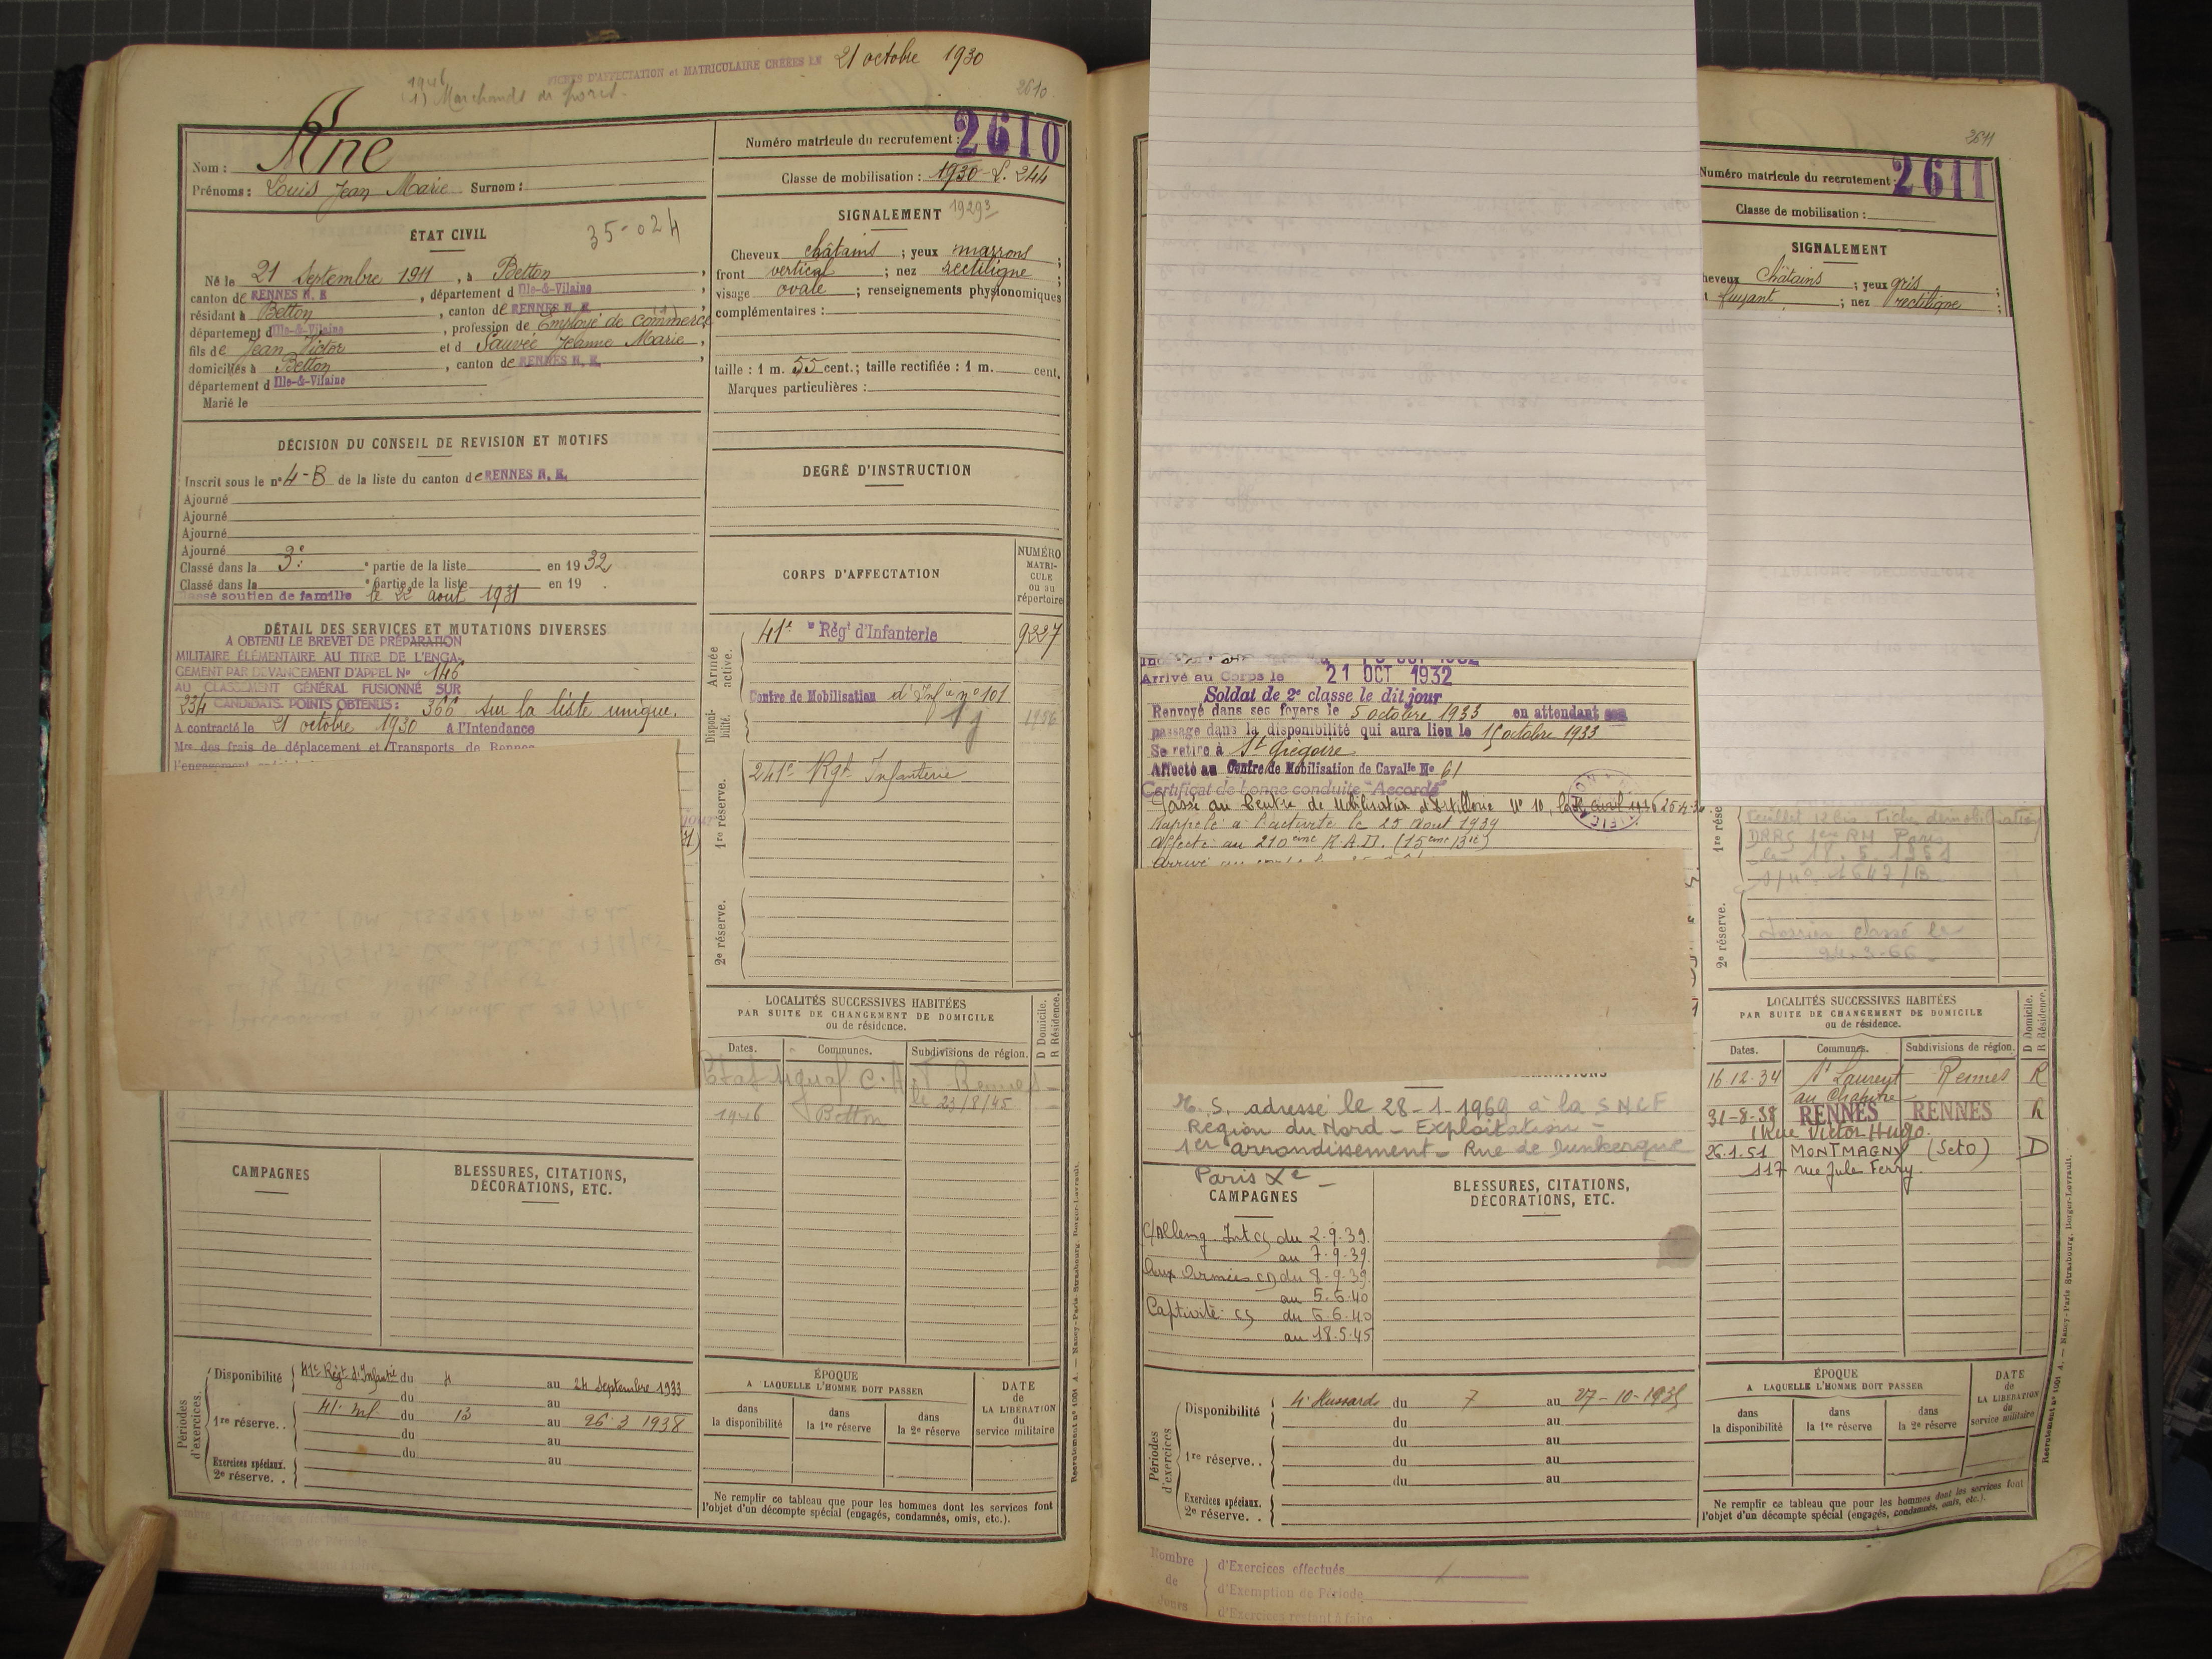 FICHES D'AFFECTATION et MATRICULAIRE CRÉÉES LE 21 octobre 1930
1946
(1) Marchands de porcs.
2610
Nom :
Prénoms : Louis Jean Marie Surnom :
ÉTAT CIVIL
35-024
Né le 21 Septembre 1911, à Betton,
canton de RENNES N. E, département d Ille-&-Vilaine,
résidant à Betton, canton de RENNES N. E.
département d Ille-&-Vilaine, profession de Employé de commerce (1)
fils de Jean Victor et d Sauvée Jeanne Marie,
domiciliés à Betton, canton de RENNES N. E.,
département d Ille-&-Vilaine
Marié le
DÉCISION DU CONSEIL DE REVISION ET MOTIFS
Inscrit sous le n° 4-B de la liste du canton de RENNES N. E.
Ajourné
Ajourné
Ajourné
Ajourné
Classé dans la 3e partie de la liste en 1932
Classé dans la e partie de la liste en 19 .
Classé soutien de famille le 22 août 1931
DÉTAIL DES SERVICES ET MUTATIONS DIVERSES
A OBTENU LE BREVET DE PRÉPARATION
MILITAIRE ÉLÉMENTAIRE AU TITRE DE L'ENGA-
GEMENT PAR DEVANCEMENT D'APPEL N° 146
AU CLASSEMENT GÉNÉRAL FUSIONNÉ SUR
234 CANDIDATS. POINTS OBTENUS : 366 sur la liste unique.
A contracté le 21 octobre 1930 à l'Intendance
Mre des frais de déplacement et Transports de Rennes
CAMPAGNES
BLESSURES, CITATIONS,
DÉCORATIONS, ETC.
Périodes d'exercices.
Disponibilité 41e Régt d'Infanie du 4 au 24 Septembre 1933
du au
1re réserve. . 41e Inf. du 13 au 26-3 1938
du au
du au
Exercices spéciaux.
2e réserve. .
Numéro matricule du recrutement : 2610
Classe de mobilisation : 1930-S. 244
SIGNALEMENT 1929 3
Cheveux châtains ; yeux marrons ;
front vertical ; nez rectiligne ;
visage ovale ; renseignements physionomiques
complémentaires :
taille : 1 m. 55 cent.; taille rectifiée : 1 m. cent.
Marques particulières :
DEGRÉ D'INSTRUCTION
CORPS D'AFFECTATION
NUMÉRO
MATRI-
CULE
ou au
répertoire
Armée active.
41e Régt d'Infanterie 9227
Disponi-
bilité.
Centre de Mobilisation d'Infie n° 101
1re réserve.
241e Rgt Infanterie
2e réserve.
LOCALITÉS SUCCESSIVES HABITÉES
PAR SUITE DE CHANGEMENT DE DOMICILE
ou de résidence.
D Domicile.
R Résidence.
Dates. Communes. Subdivisions de région.
Rennes
le 23/8/45
1946 Betton
ÉPOQUE
A LAQUELLE L'HOMME DOIT PASSER
dans la disponibilité
dans la 1re réserve
dans la 2e réserve
DATE
de
LA LIBÉRATION
du
service militaire
Ne remplir ce tableau que pour les hommes dont les services font
l'objet d'un décompte spécial (engagés, condamnés, omis, etc.).
Recrutement n° 1001 A. — Nancy-Paris-Strasbourg, Berger-Levrault.
2611
Numéro matricule du recrutement : 2611
Classe de mobilisation :
SIGNALEMENT
heveux Châtains ; yeux gris ;
t fuyant ; nez rectiligne ;
Arrivé au Corps le 21 OCT 1932
Soldat de 2e classe le dit jour
Renvoyé dans ses foyers le 5 octobre 1933 en attendant son
passage dans la disponibilité qui aura lieu le 15 octobre 1933
Se retire à St Grégoire
Affecté au Centre de Mobilisation de Cavalie N° 61
Certificat de bonne conduite "Accordé"
Passé au Centre de Mobilisation d'Artillerie N° 10, le
Rappelé à l'activité le 25 Août 1939
affecté au 210ème R.A.D. (15ème Bie)
1re rése
Feuillet 12 bis Fiche démobilisation
18. 5. 1951
2e réserve.
Dossier classé le
24-3-66
LOCALITÉS SUCCESSIVES HABITÉES
PAR SUITE DE CHANGEMENT DE DOMICILE
ou de résidence.
D Domicile.
R Résidence.
Dates. Communes. Subdivisions de région.
16.12.34 St Laurent Rennes R
31-8-38 RENNES RENNES R
1 Rue Victor Hugo.
26.1.51 MONTMAGNY (SetO) D
117 rue Jule Ferry.
E. S. adressé le 28-1-1969 à la SNCF
Région du Nord - Exploitation -
1er arrondissement - Rue de Dunkerque
Paris Xe -
CAMPAGNES
BLESSURES, CITATIONS,
DÉCORATIONS, ETC.
C/Allemg. Int CS du 2.9.39.
au 7.9.39.
Aux Armées CD du 8-9-39.
au 5.6.40
Captivité CS du 6.6.40
au 18.5.45
Périodes d'exercices
Disponibilité 4e Hussards du 7 au 27-10-1935
du au
1re réserve. . du au
du au
du au
Exercices spéciaux.
2e réserve. .
ÉPOQUE
A LAQUELLE L'HOMME DOIT PASSER
dans la disponibilité
dans la 1re réserve
dans la 2e réserve
DATE
de
LA LIBÉRATION
du
service militaire
Ne remplir ce tableau que pour les hommes dont les services font
l'objet d'un décompte spécial (engagés, condamnés, omis, etc.).
Recrutement n° 1001 A. — Nancy-Paris-Strasbourg, Berger-Levrault.
Nombre de Jours
d'Exercices effectués
d'Exemption de Période
d'Exercices restant à faire